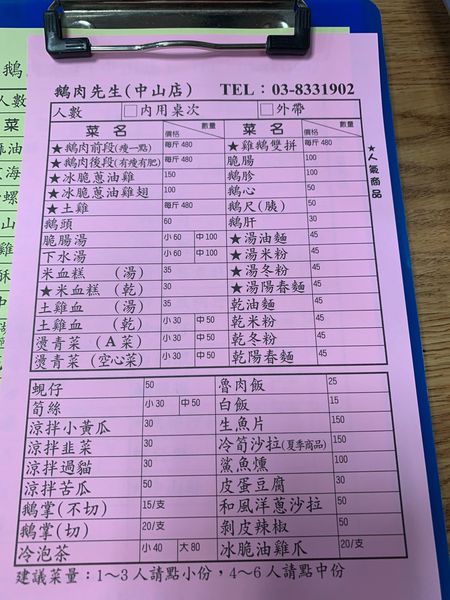 鵝肉先生(中山店) TEL：03-8331902
人數 □內用桌次 □外帶
菜名 價格 數量 菜名 價格 數量
★鵝肉前段(瘦一點) 每斤 480 ★雞鵝雙拼 每斤 480
★鵝肉後段(有瘦有肥) 每斤 480 脆腸 100
★冰脆蔥油雞 150 鵝胗 100
★冰脆蔥油雞翅 100 鵝心 50
★土雞 每斤 480 鵝尺(胰) 50
鵝頭 60 鵝肝 30
脆腸湯 小 60 中 100 ★湯油麵 45
下水湯 小 60 中 100 ★湯米粉 45
米血糕(湯) 35 ★湯冬粉 45
★米血糕(乾) 30 ★湯陽春麵 45
土雞血(湯) 35 乾油麵 45
土雞血(乾) 小 30 中 50 乾米粉 45
燙青菜(A菜) 小 30 中 50 乾冬粉 45
燙青菜(空心菜) 小 30 中 50 乾陽春麵 45
★人氣商品
蜆仔 50 魯肉飯 25
筍絲 小 30 中 50 白飯 15
涼拌小黃瓜 30 生魚片 150
涼拌韭菜 30 冷筍沙拉(夏季商品) 150
涼拌過貓 30 鯊魚燻 100
涼拌苦瓜 50 皮蛋豆腐 30
鵝掌(不切) 15/支 和風洋蔥沙拉 50
鵝掌(切) 20/支 剝皮辣椒 50
冷泡茶 小 40 大 80 冰脆油雞爪 20/支
建議菜量：1～3人請點小份，4～6人請點中份
鵝
人數
菜